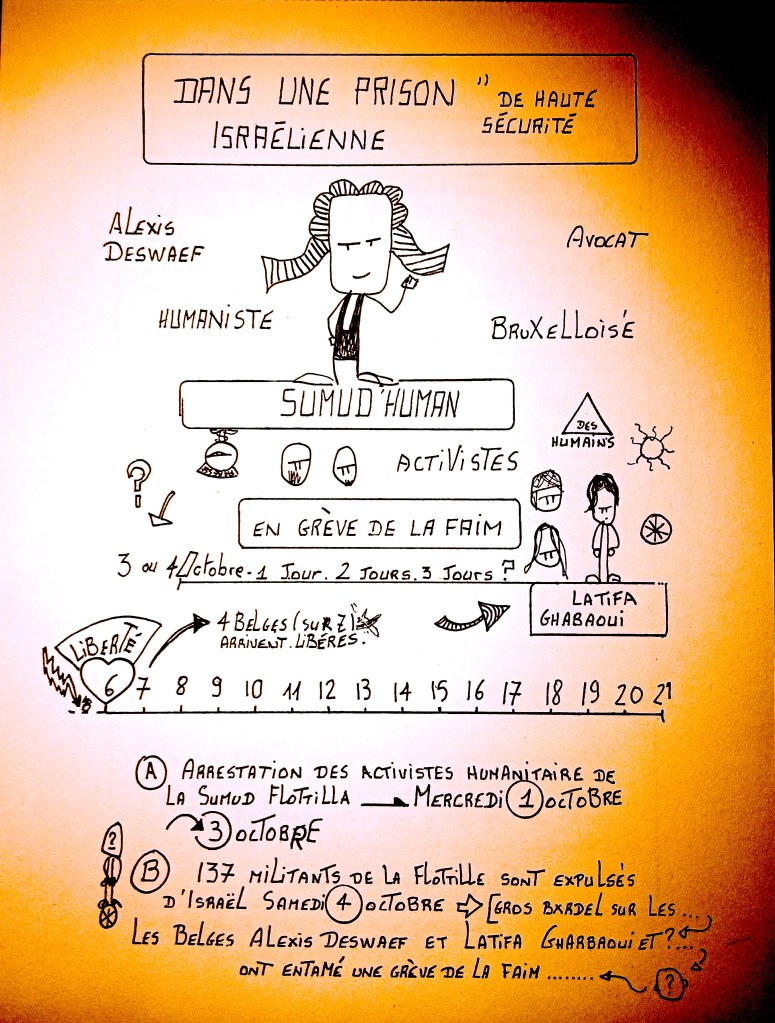 DANS UNE PRISON " DE HAUTE
ISRAÉLIENNE SÉCURITÉ
ALEXIS
DESWAEF
AVOCAT
HUMANISTE
BRUXELLOISÉ
SUMUD'HUMAN
DES
HUMAINS
ACTIVISTES
?
EN GRÈVE DE LA FAIM
3 ou 4 Octobre - 1 JOUR. 2 JOURS. 3 JOURS ?
LATIFA
GHABAOUI
LIBERTÉ
4 BELGES (SUR 7)
ARRIVENT. LIBÉRES.
6 7 8 9 10 11 12 13 14 15 16 17 18 19 20 21
A ARRESTATION DES ACTIVISTES HUMANITAIRE DE
LA SUMUD FLOTRILLA MERCREDI 1 OCTOBRE
3 OCTOBRE
?
B 137 MILITANTS DE LA FLOTILLE SONT EXPULSÉS
D'ISRAËL SAMEDI 4 OCTOBRE [GROS BXRDEL SUR LES ...
LES BELGES ALEXIS DESWAEF ET LATIFA GHARBAOUI ET ?...
ONT ENTAMÉ UNE GRÈVE DE LA FAIM ........
?